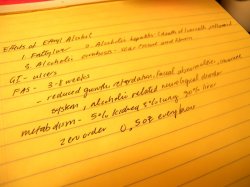 Effects of Ethyl Alcohol
1. Fatty liver 2. Alcoholic hepatitis (death of livercells, inflammed
3. Alcoholic cirrhosis - scar tissue and fibrosis
GI - ulcers
FAS - 3-8 weeks
- reduced growth retardation, facial abnormalities, nervous
system, alcoholic related neurological disorder
metabolism - 5% kidney 5% lung, 90% liver
zero order 0.5oz every hour